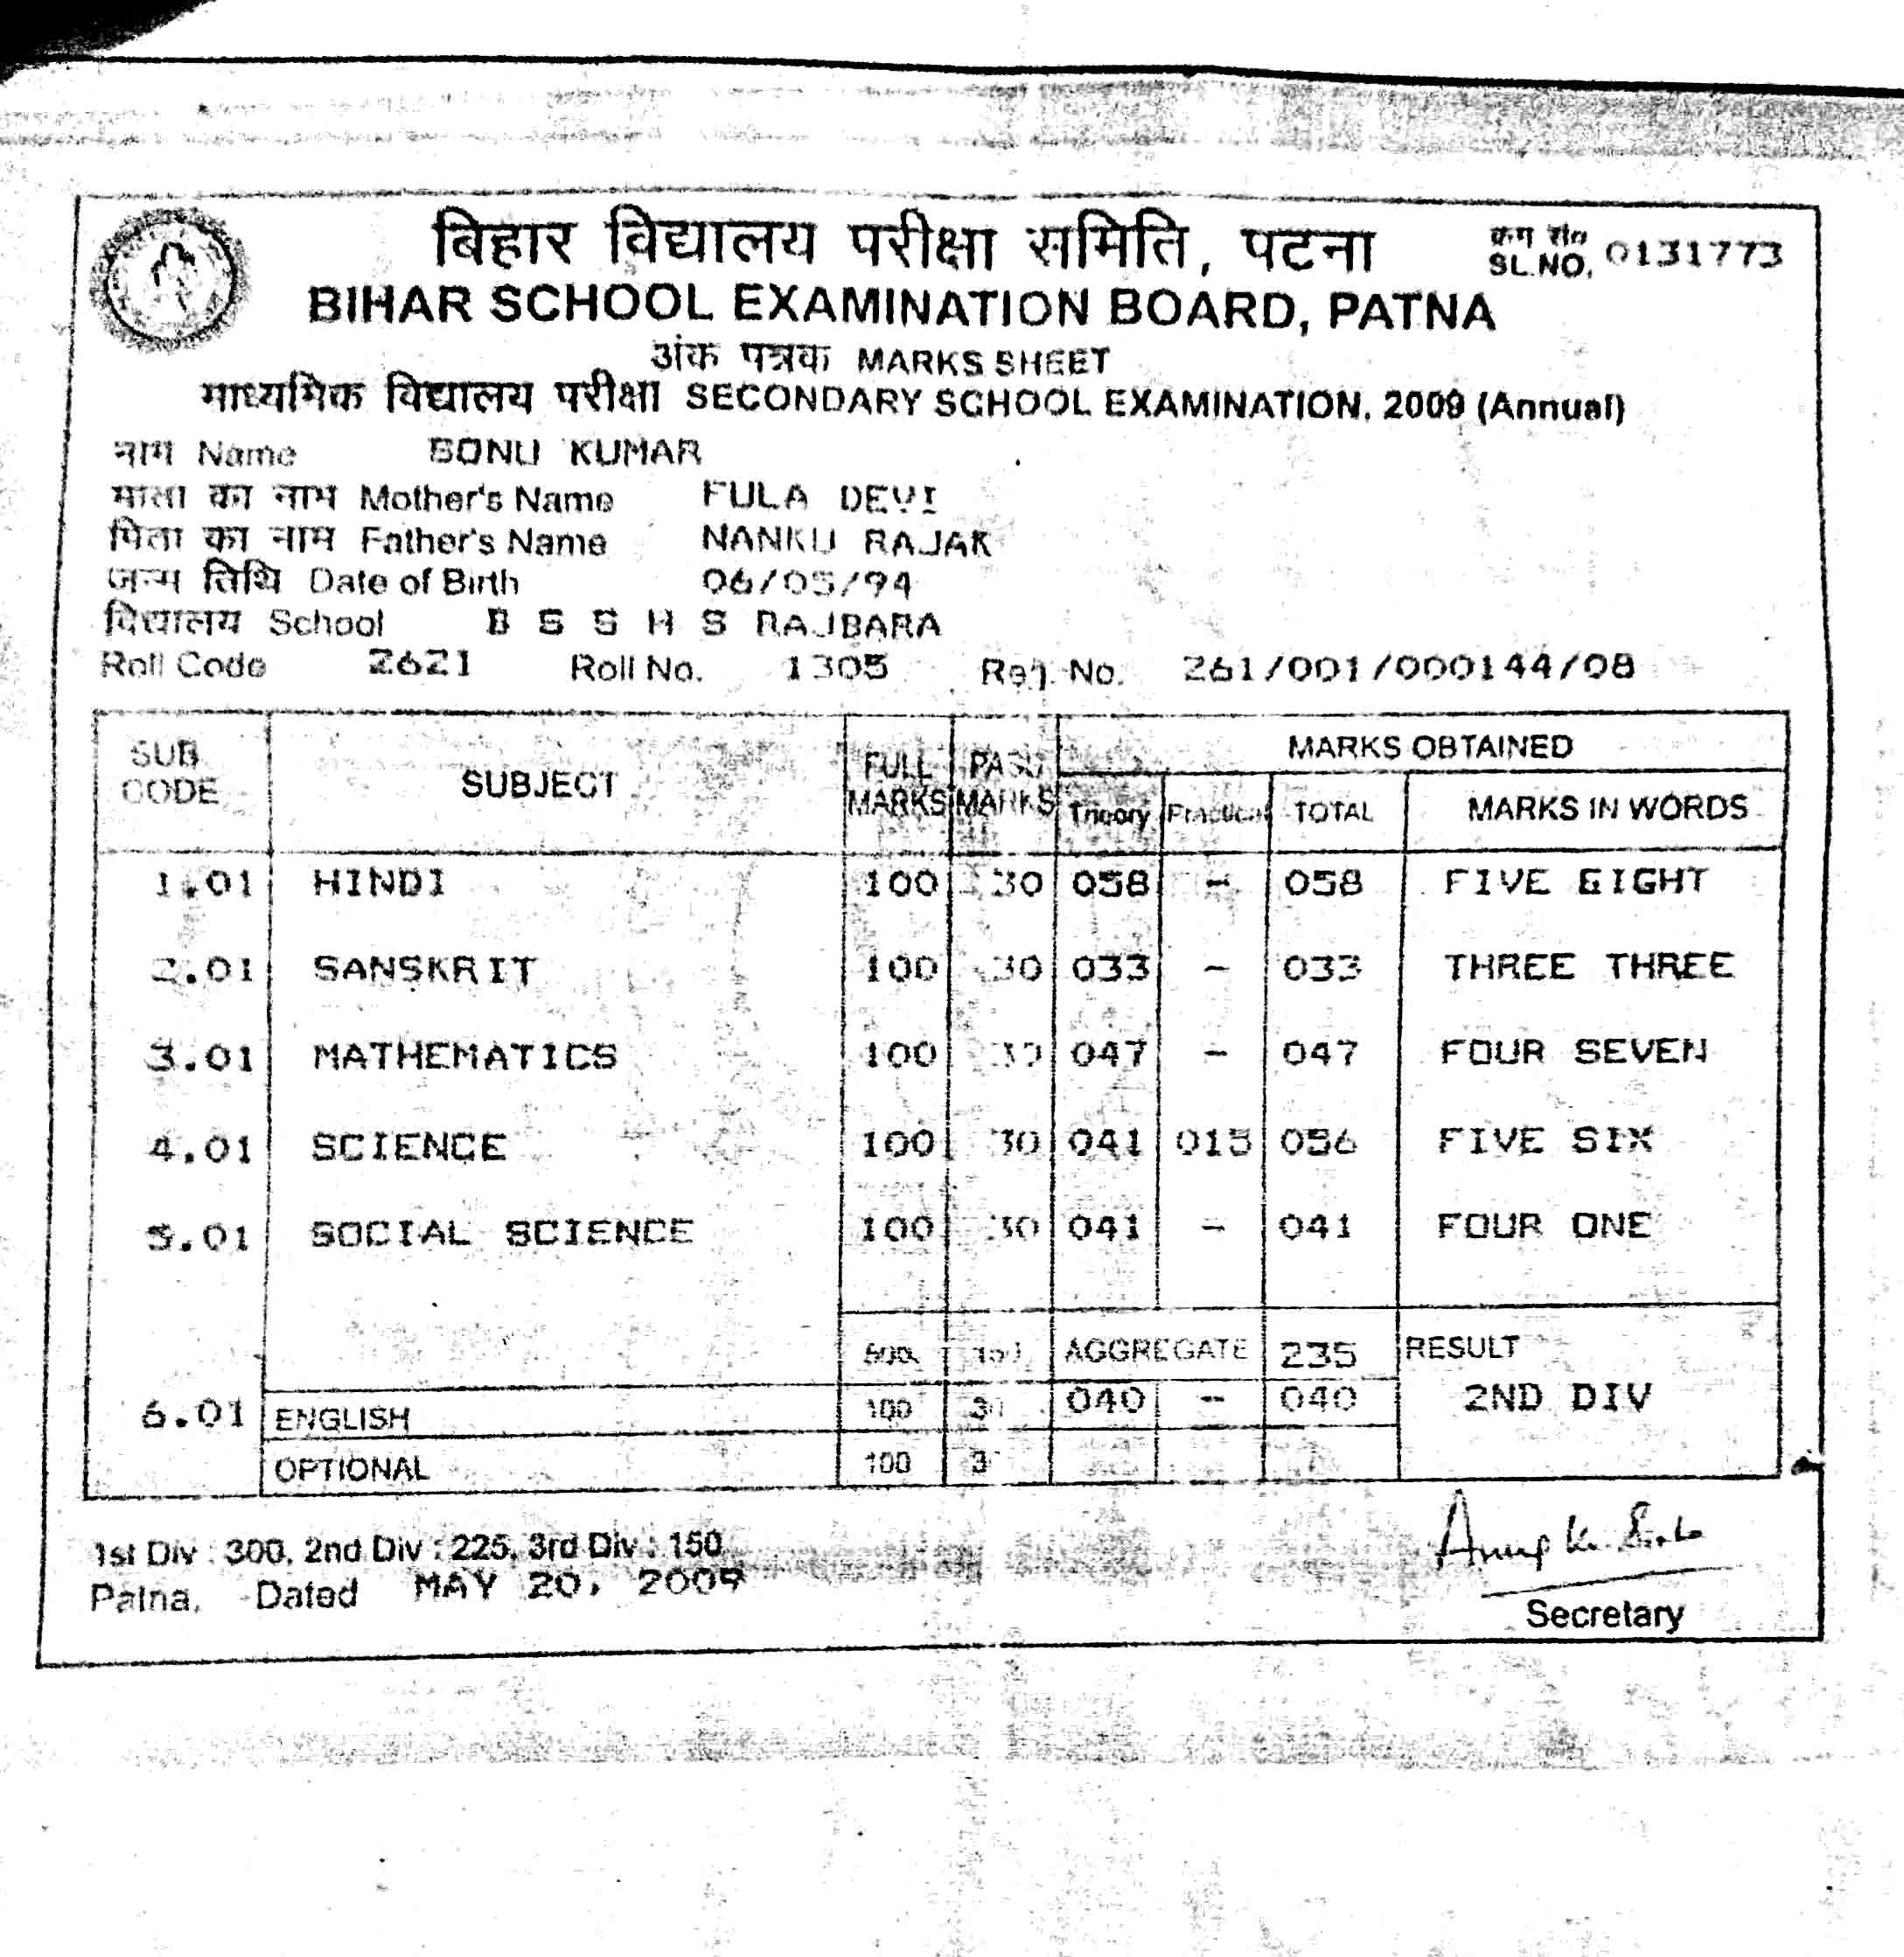 बिहार विद्यालय परीक्षा समिति, पटना
क्रम सं० SL.NO. 0131773
BIHAR SCHOOL EXAMINATION BOARD, PATNA
अंक पत्रक MARKS SHEET
माध्यमिक विद्यालय परीक्षा SECONDARY SCHOOL EXAMINATION, 2009 (Annual)
नाम Name SONU KUMAR
माता का नाम Mother's Name FULA DEVI
पिता का नाम Father's Name NANKU RAJAK
जन्म तिथि Date of Birth 06/05/94
विद्यालय School B S S H S RAJBARA
Roll Code 2621 Roll No. 1305 Reg. No. 261/001/000144/08
SUB CODE SUBJECT FULL MARKS PASS MARKS MARKS OBTAINED
Theory Practical TOTAL MARKS IN WORDS
1.01 HINDI 100 30 058 - 058 FIVE EIGHT
2.01 SANSKRIT 100 30 033 - 033 THREE THREE
3.01 MATHEMATICS 100 30 047 - 047 FOUR SEVEN
4.01 SCIENCE 100 30 041 015 056 FIVE SIX
5.01 SOCIAL SCIENCE 100 30 041 - 041 FOUR ONE
500 150 AGGREGATE 235 RESULT
6.01 ENGLISH 100 30 040 - 040 2ND DIV
OPTIONAL 100
1st Div : 300, 2nd Div : 225, 3rd Div : 150
Patna, Dated MAY 20, 2009
Anup
Secretary